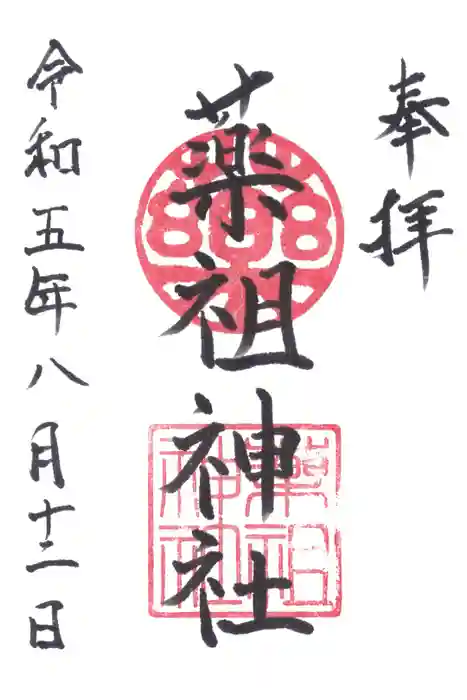 奉拝
薬祖神社
薬祖神社
令和五年八月十二日